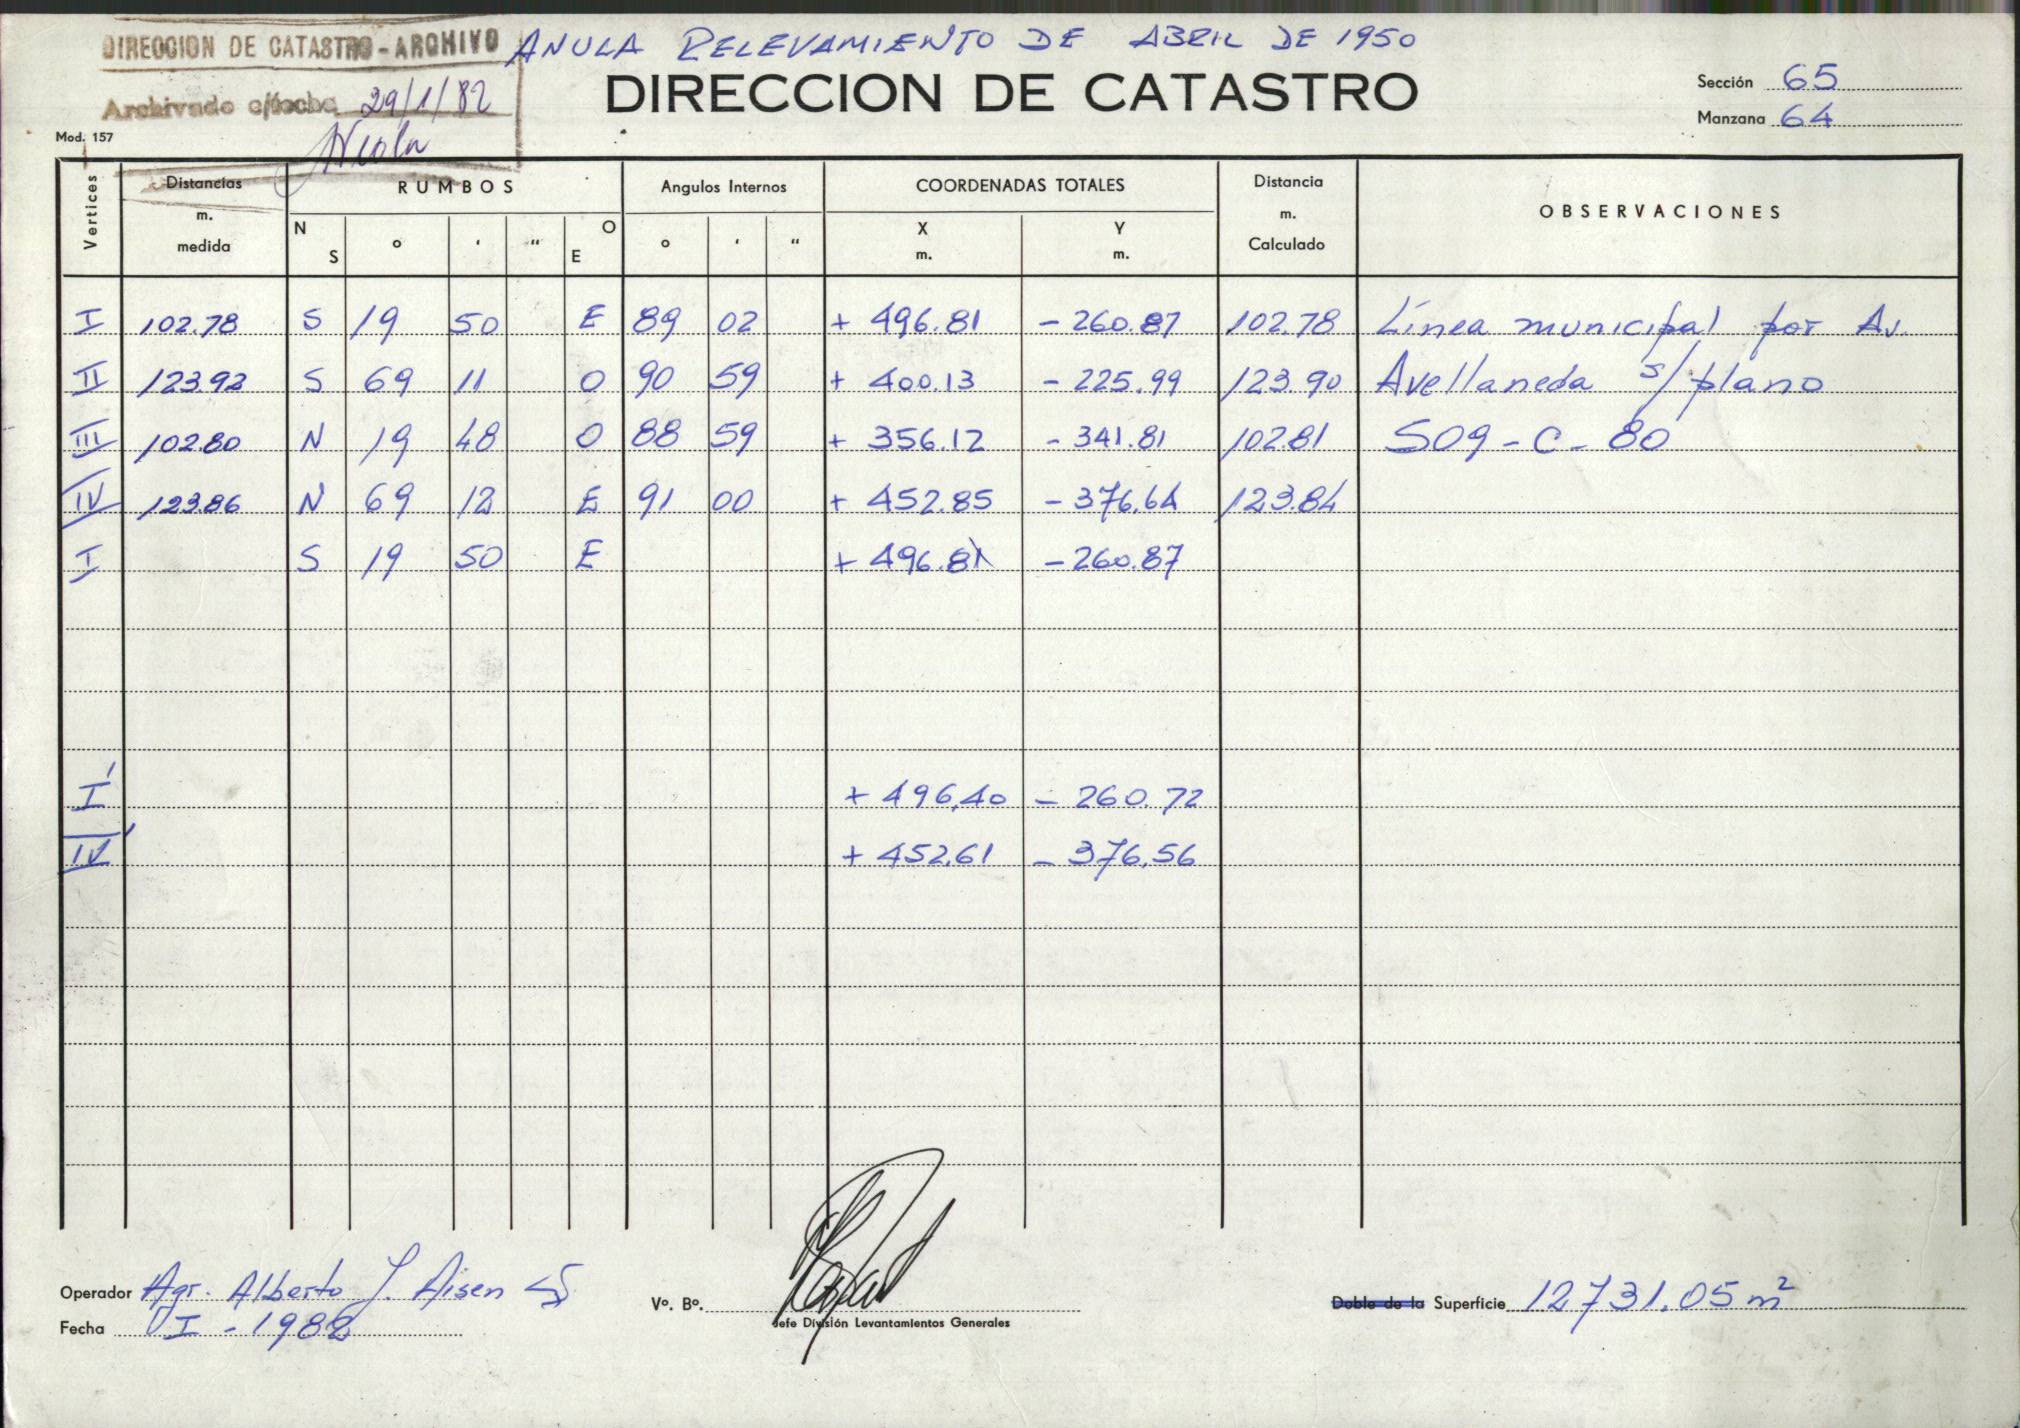 DIRECCION DE CATASTRO - ARCHIVO
ANULA RELEVAMIENTO DE ABRIL DE 1950
Archivado c/fecha 29/1/82
DIRECCION DE CATASTRO
Sección 65
Manzana 64
Mod. 157
Vertices Distancias m. medida RUMBOS Angulos Internos COORDENADAS TOTALES Distancia m. Calculado OBSERVACIONES
N S ° ' " E O ° ' " X m. Y m.
I 102.78 S 19 50 E 89 02 + 496.81 - 260.87 102.78 Línea municipal por Av.
II 123.92 S 69 11 O 90 59 + 400.13 - 225.99 123.90 Avellaneda s/plano
III 102.80 N 19 48 O 88 59 + 356.12 - 341.81 102.81 S09-C-80
IV 123.86 N 69 12 E 91 00 + 452.85 - 376.64 123.84
I S 19 50 E + 496.81 - 260.87
I' + 496,40 - 260.72
IV' + 452,61 - 376,56
Operador Agr. Alberto J. Aisen
Fecha I - 1982
Vº. Bº.
Jefe División Levantamientos Generales
Doble de la Superficie 12731.05 m²